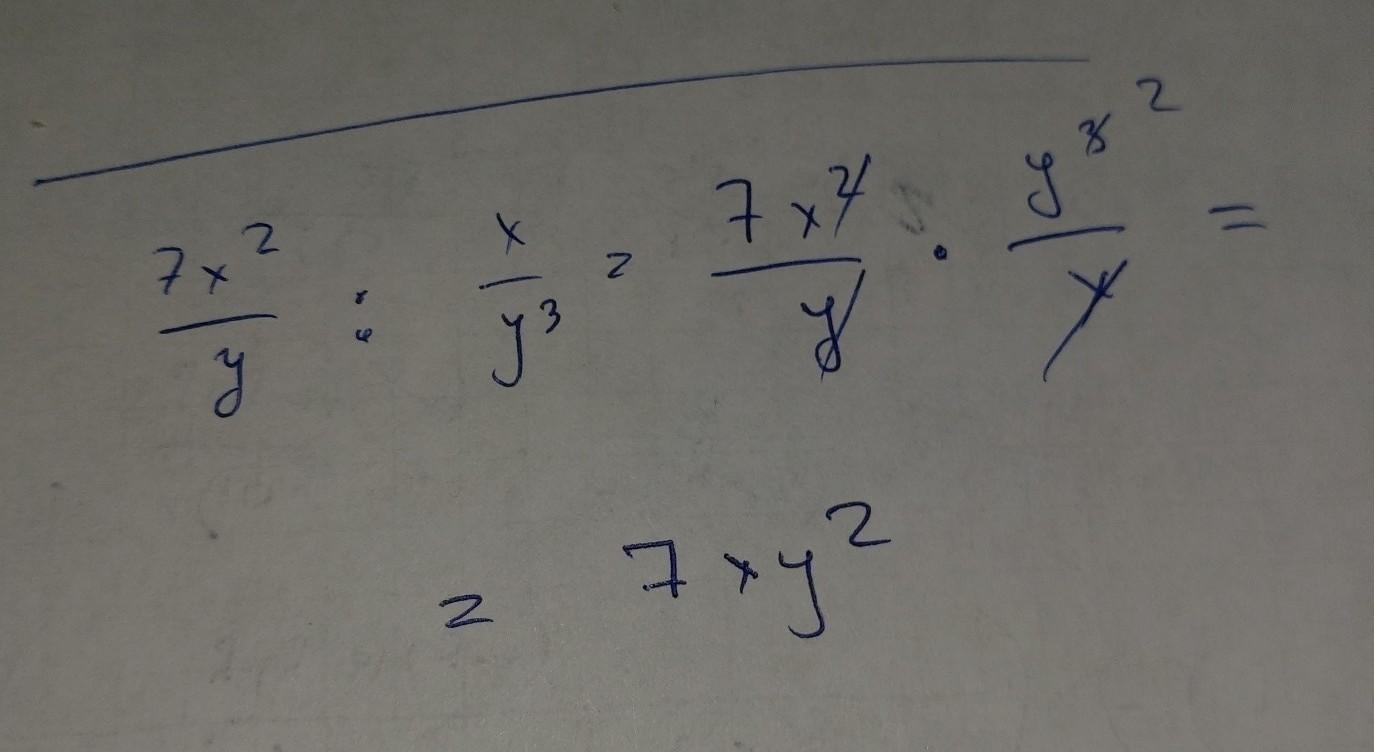 7x²/y : x/y³ = 7x²/y · y³ ²/x =
= 7xy²